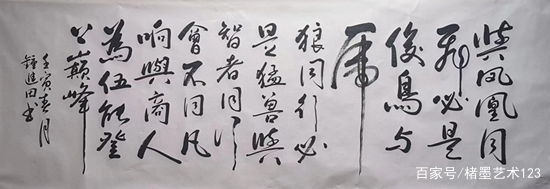 與鳳凰同
飛必是
俊鳥与
虎
狼同行必
是猛兽與
智者同行
會不同凡
响與商人
為伍能登
上巔峰
壬寅春月
進田书
百家号/楮墨艺术123